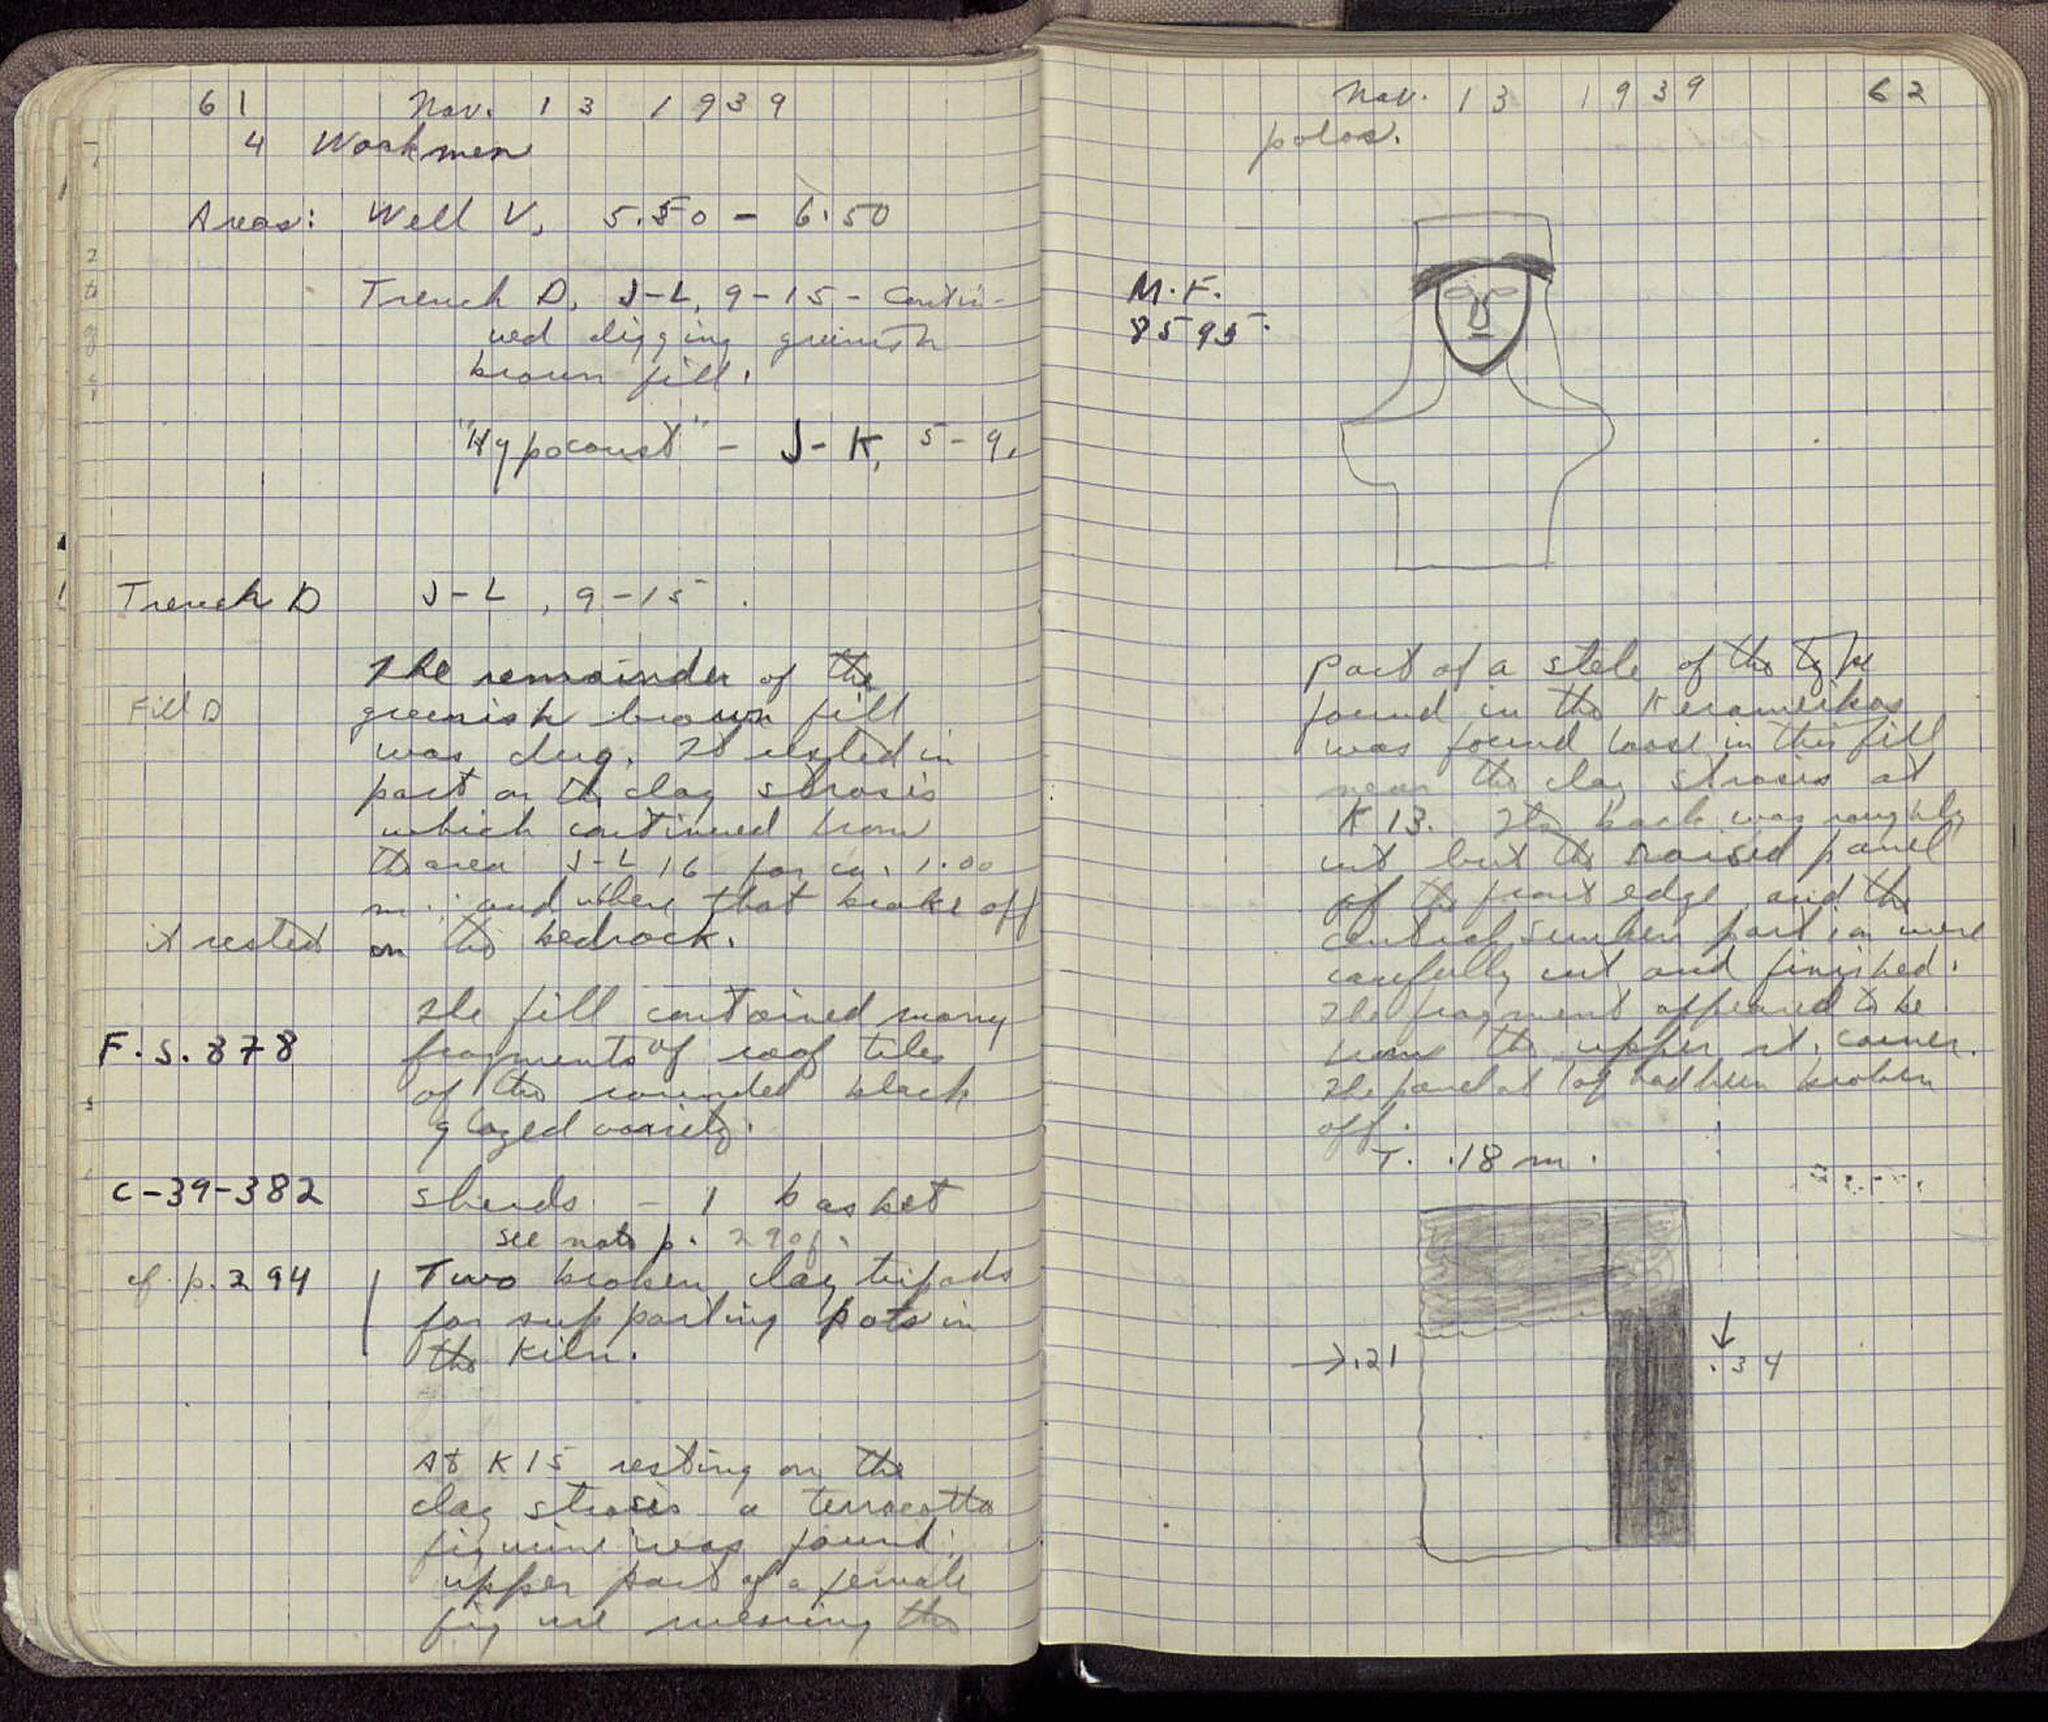 61 Nov. 13 1939
4 Workmen
Areas: Well V, 5.50 - 6.50
Trench D, J-L, 9-15 - Contin-
ued digging greenish
brown fill.
"Hypocaust" - J-K, 5-9.
Trench D J-L, 9-15.
The remainder of the
Fill D greenish brown fill
was dug. It rested in
part on the clay strosis
which continued from
the area J-L 16 for ca. 1.00
m. and where that broke off
it rested on the bedrock.
The fill contained many
F.S. 878 fragments of roof tiles
of the rounded black
glazed variety.
C-39-382 sherds - 1 basket
see note p. 290f.
cf. p. 294 Two broken clay tripods
for supporting pots in
the kiln.
At K 15 resting on the
clay strosis a terracotta
figurine was found:
upper part of a female
figure wearing the
Nov. 13 1939 62
polos.
M.F.
8595.
Part of a stele of the type
found in the Kerameikos
was found loose in this fill
near the clay strosis at
K 13. Its back was roughly
cut but the raised panel
of the front edge and the
central sunken portion were
carefully cut and finished.
The fragment appeared to be
from the upper rt. corner.
The panel at top had been broken
off.
T. .18 m.
→.21
↓
.34